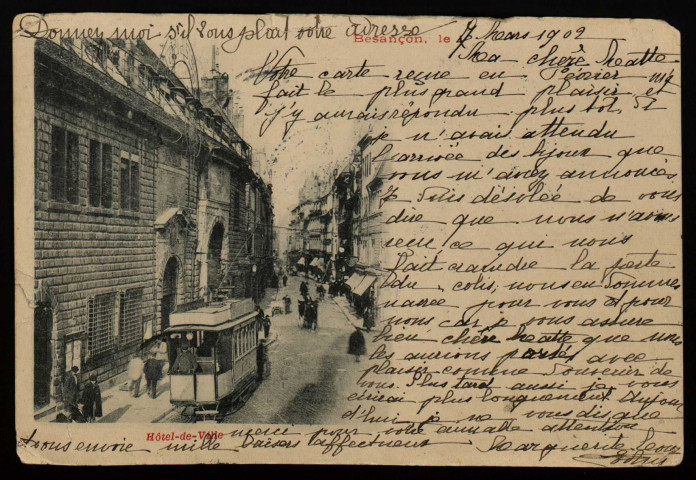 Donnez moi s'il vous plaît votre adresse
Besançon, le 7 Mars 1902
Ma chère Mette
Votre carte reçue en Février m'a
fait le plus grand plaisir et
j'y aurais répondu plus tôt si
je n'avais attendu
l'arrivée des bijoux que
vous m'aviez annoncés
Je suis désolée de vous
dire que nous n'avons
reçu ce qui nous
fait craindre la perte
du colis, nous en sommes
navrée pour vous et pour
nous car je vous assure
bien chère Mette que nous
les aurions portés avec
plaisir comme souvenir de
vous. Plus tard aussi je vous
écrirai plus longuement. Aujour
d'hui je ne vous dis que
merci pour votre aimable attention
Hôtel-de-Ville
vous envoie mille baisers affectueux
Marguerite